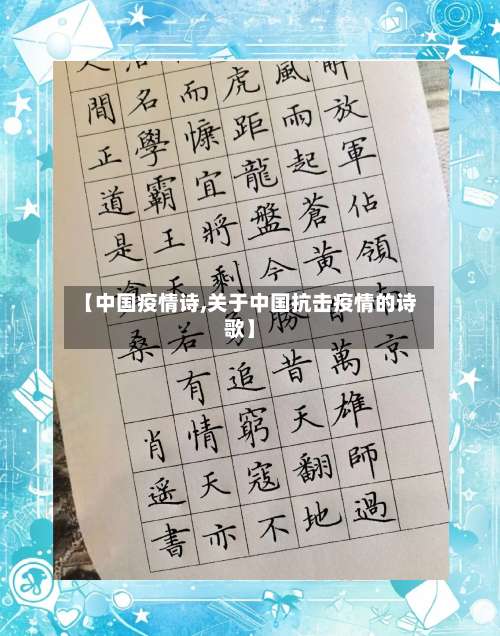 【中国疫情诗,关于中国抗击疫情的诗
歌】
解放軍佔領京
風雨起蒼黃百萬雄師過
虎距龍盤今勝昔天翻地
而慷宜將剩追窮寇不
名學霸王天若有情天亦
間正道是滄桑
肖遥書